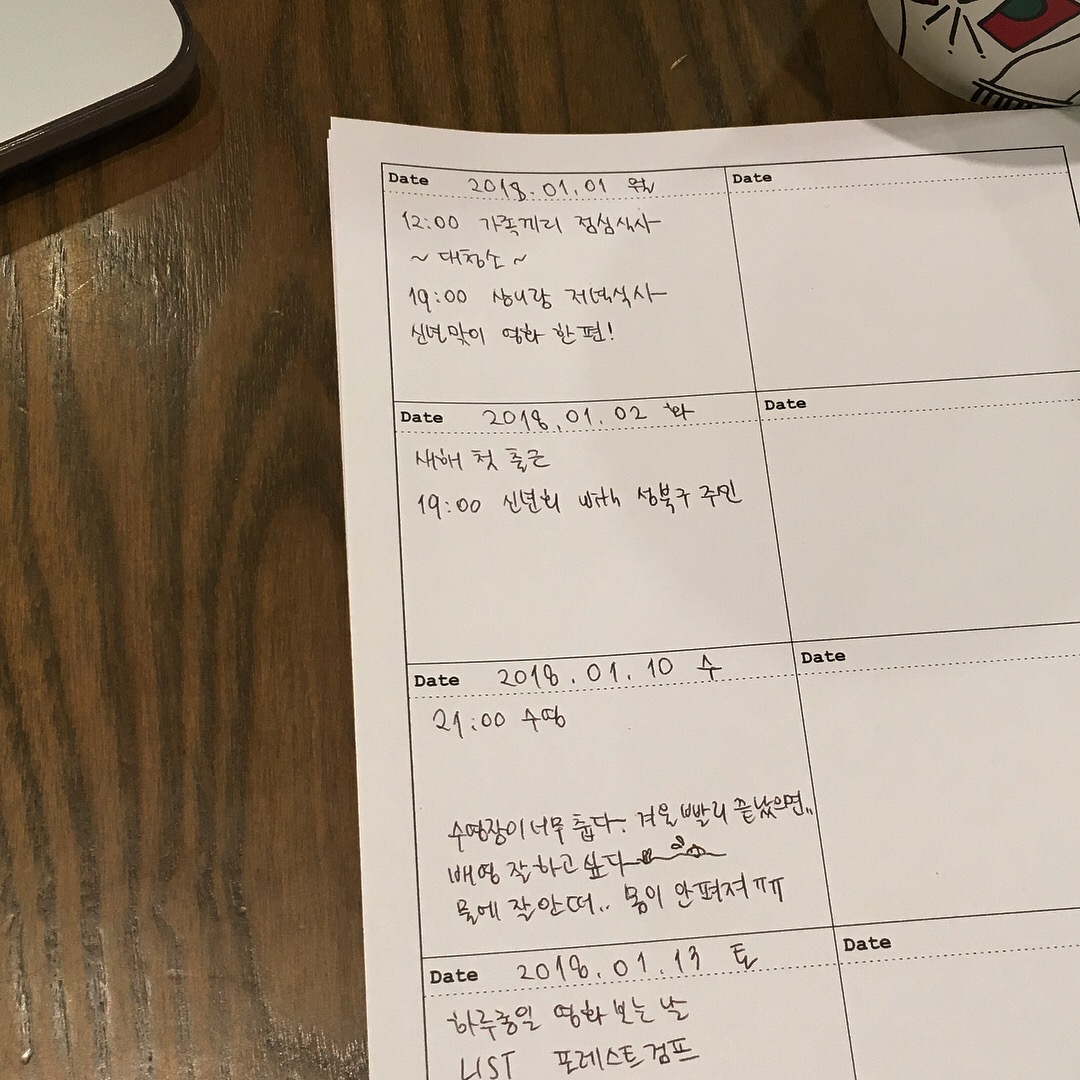 Date 2018.01.01 월
12:00 가족끼리 점심식사
~ 대청소 ~
19:00 상니랑 저녁식사
신년맞이 영화 한 편!
Date
Date 2018.01.02 화
새해 첫 출근
19:00 신년회 with 성북구 주민
Date
Date 2018.01.10 수
21:00 수영
수영장이 너무 춥다. 겨울 빨리 끝났으면..
배영 잘하고 싶다
물에 잘 안 떠.. 몸이 안 펴져 ㅠㅠ
Date
Date 2018.01.13 토
하루종일 영화 보는 날
LIST 포레스트 검프
Date